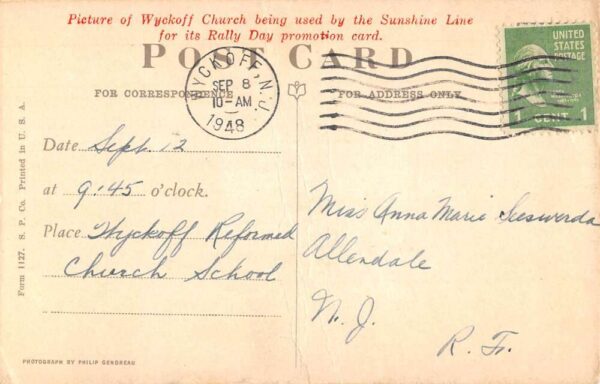 Picture of Wyckoff Church being used by the Sunshine Line
for its Rally Day promotion card.
POST CARD
FOR CORRESPONDENCE
FOR ADDRESS ONLY
WYCKOFF, N.J.
SEP 8
10-AM
1948
UNITED
STATES
POSTAGE
1 CENT 1
Date Sept. 12
at 9:45 o'clock.
Place Wyckoff Reformed
Church School
Miss Anna Marie
Allendale
N. J.
Form 1127. S. P. Co. Printed in U. S. A.
PHOTOGRAPH BY PHILIP GENDREAU